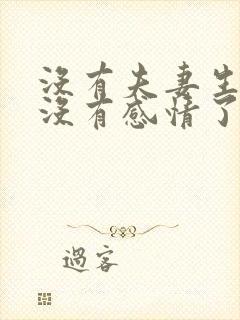 沒有夫妻生
沒有感情了
過客